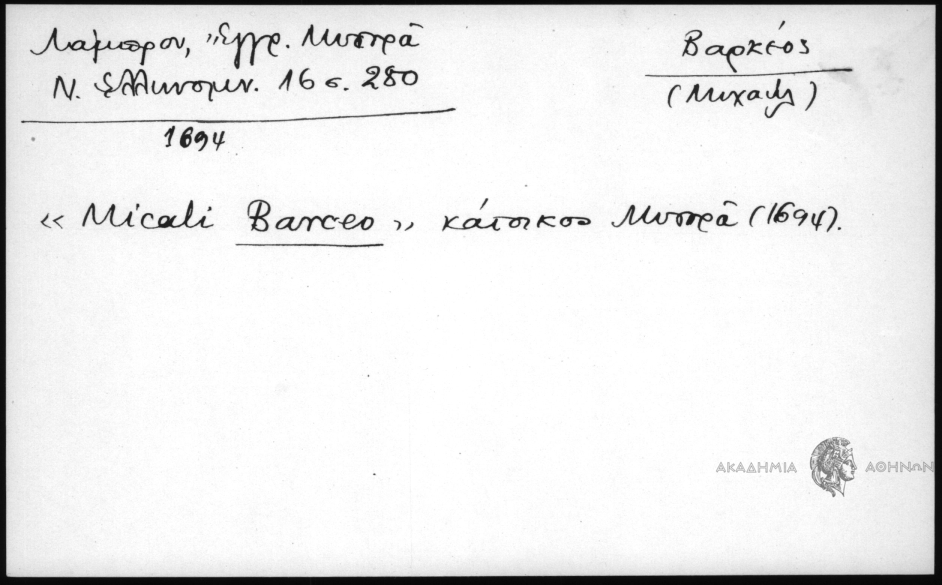 Λάμπρου, "Εγγρ. Μυστρᾶ
Ν. Ἑλληνομν. 16 σ. 280
1694
Βαρκέος
(Μιχαήλ)
« Micali Barceo » κάτοικος Μυστρᾶ (1694).
ΑΚΑΔΗΜΙΑ ΑΘΗΝΩΝ